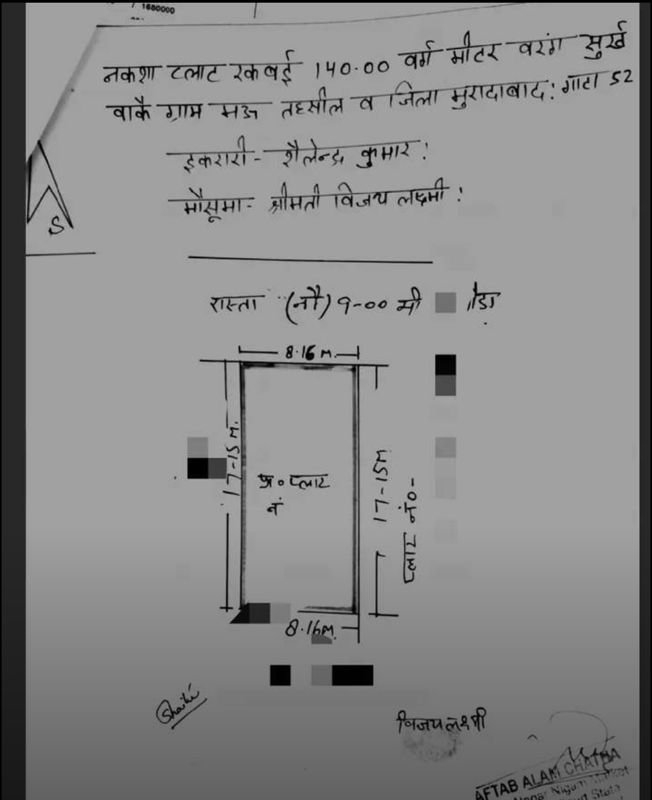 1680000
नकशा प्लाट रकवई 140.00 वर्ग मीटर वरंग सुर्ख
वाकै ग्राम मऊ तहसील व जिला मुरादाबाद: गाटा 52
इकरारी- शैलेन्द्र कुमार!
मौसूमा- श्रीमती विजय लक्ष्मी!
S
रास्ता (नौ) 9-00 मी
8.16 M.
17-15 M.
प्र० प्लाट
नं
17-15 M
प्लाट नं०-
8.16 M.
विजय लक्ष्मी
AFTAB ALAM